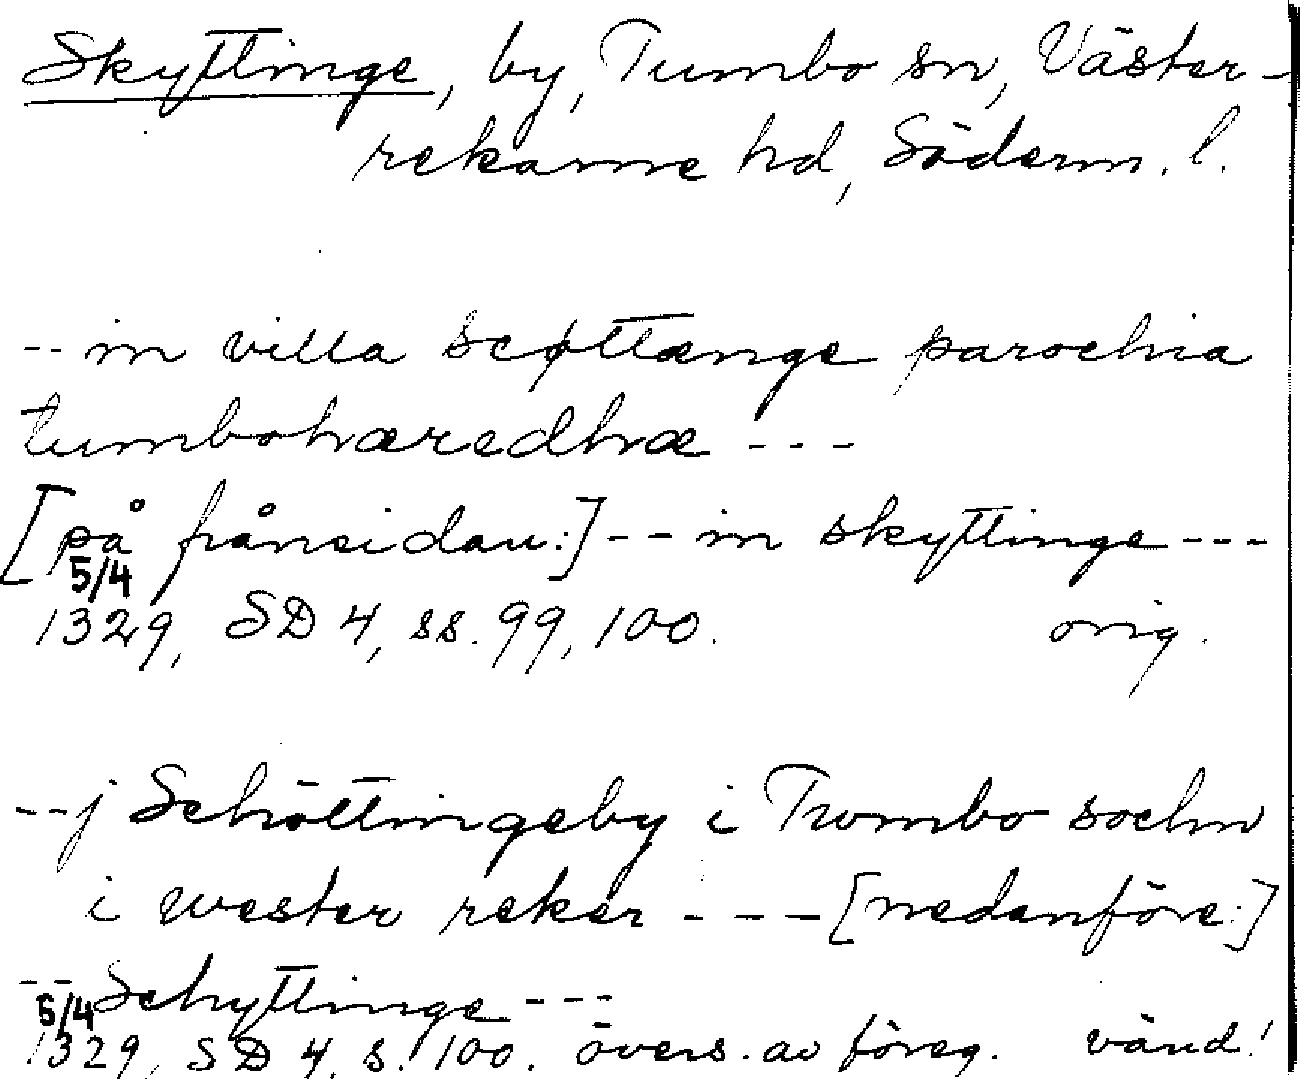 Skyttinge, by, Tumbo sn, Väster-
rekarne hd, Söderm. l.
-- in villa scøttænge parochia
tumbohæredhræ ---
[på frånsidan:] -- in skyttinge ---
5/4
1329, SD 4, ss. 99, 100. orig.
-- j Schöttingeby i Trombo sochn
i wester reker --- [nedanföre:]
-- Schyttinge ---
5/4
1329, SD 4, s. 100. övers. av föreg. vänd!